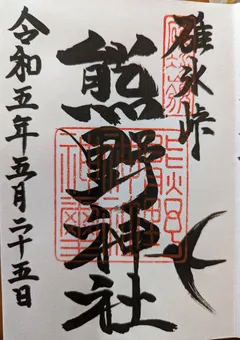 碓氷峠
熊野神社
令和五年五月二十五日